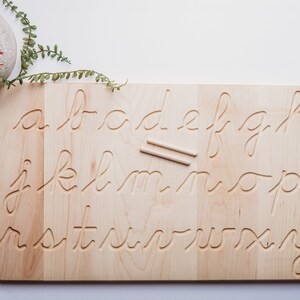 abcdefgh
jklmnop
rstuvwxy